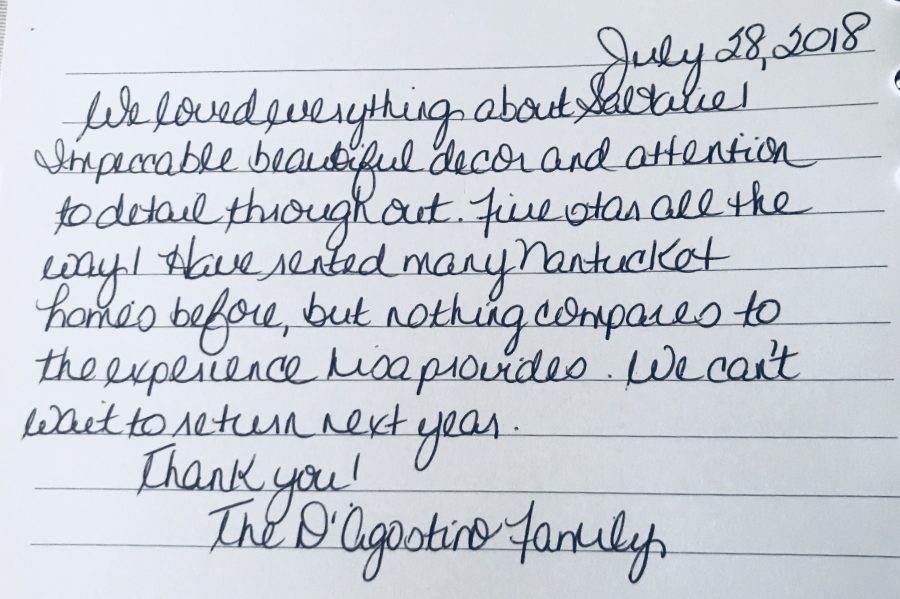 July 28, 2018
We loved everything about Saltaire!
Impeccable beautiful decor and attention
to detail throughout. Five star all the
way! Have rented many Nantucket
homes before, but nothing compares to
the experience Lisa provides. We can't
wait to return next year.
Thank you!
The D'Agostino Family